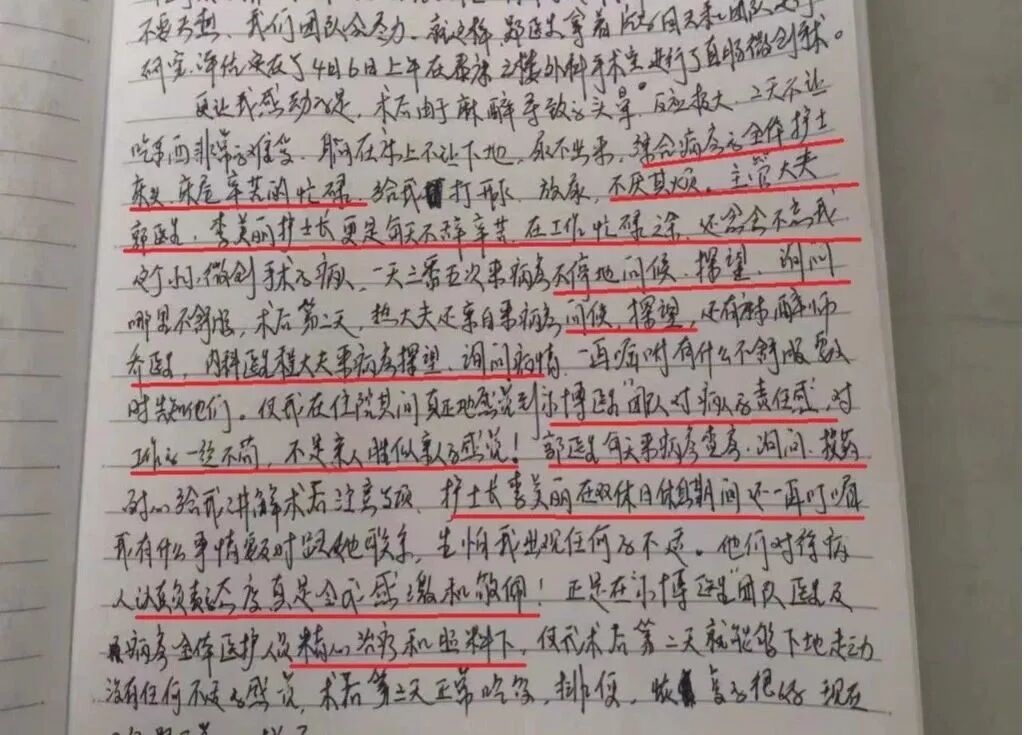 不要太想，我们团队会尽力，就这样，郭医生拿着片子多日天和团队进行
研究、评估，安在了4月6日上午在泰禄三楼外科手术室进行了直肠微创术。
更让我感动的是，术后由于麻醉导致的头晕，反应极大，二天不让
吃东西非常的难受，期间在床上不让下地，尿不出来，综合病房的全体护士
床头、床尾辛苦的忙碌，给我打开水，放尿，不厌其烦。主管大夫
郭医生，李美丽护士长更是每天不辞辛苦，在工作忙碌之余，还念念不忘我
这个小小微创手术的病人，一天三番五次来病房不停地问候、探望、询问
哪里不舒服，术后第二天，热大夫还亲自来病房问候，探望，还有麻醉师
乔医生，内科医生程大夫来病房探望、询问病情，一再嘱咐有什么不舒服要及
时告知他们。使我在住院其间真正地感觉到尔博医生"团队对病人的责任感，对
工作的一丝不苟，不是亲人胜似亲人的感觉！郭医生每天来病房查房、询问、换药
耐心给我讲解术后注意事项，护士长李美丽在双休日休息期间还一再叮嘱
我有什么事情要及时跟她联系，生怕我出现任何的不适。他们对待病
人认真负责的态度真是令我感激和敬佩！正是在尔博医生"团队医生及
病房全体医护人员精心治疗和照料下，使我术后第二天就能够下地走动
没有任何不适的感觉，术后第三天正常吃饭，排便，恢复的很好，现在